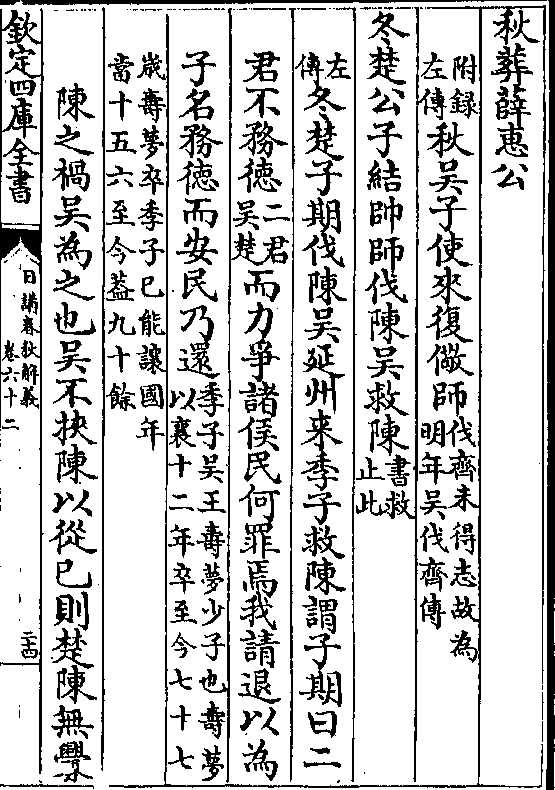 秋葬薛惠公
附録左傳秋吳子使來復儆師伐齊未得志故為明年吳伐齊傳
冬楚公子結帥師伐陳吳救陳書救止此
左傳冬楚子期伐陳吳延州来季子救陳謂子期曰二
君不務德二君吳楚而力爭諸侯民何罪焉我請退以為
子名務德而安民乃還季子吳王壽夢少子也壽夢以襄十二年卒至今七十七
歲壽夢卒季子已能讓國年當十五六至今葢九十餘
陳之禍吳為之也吳不挾陳以從已則楚陳無釁
欽定四庫全書
日講春秋解義
卷六十二
二十四